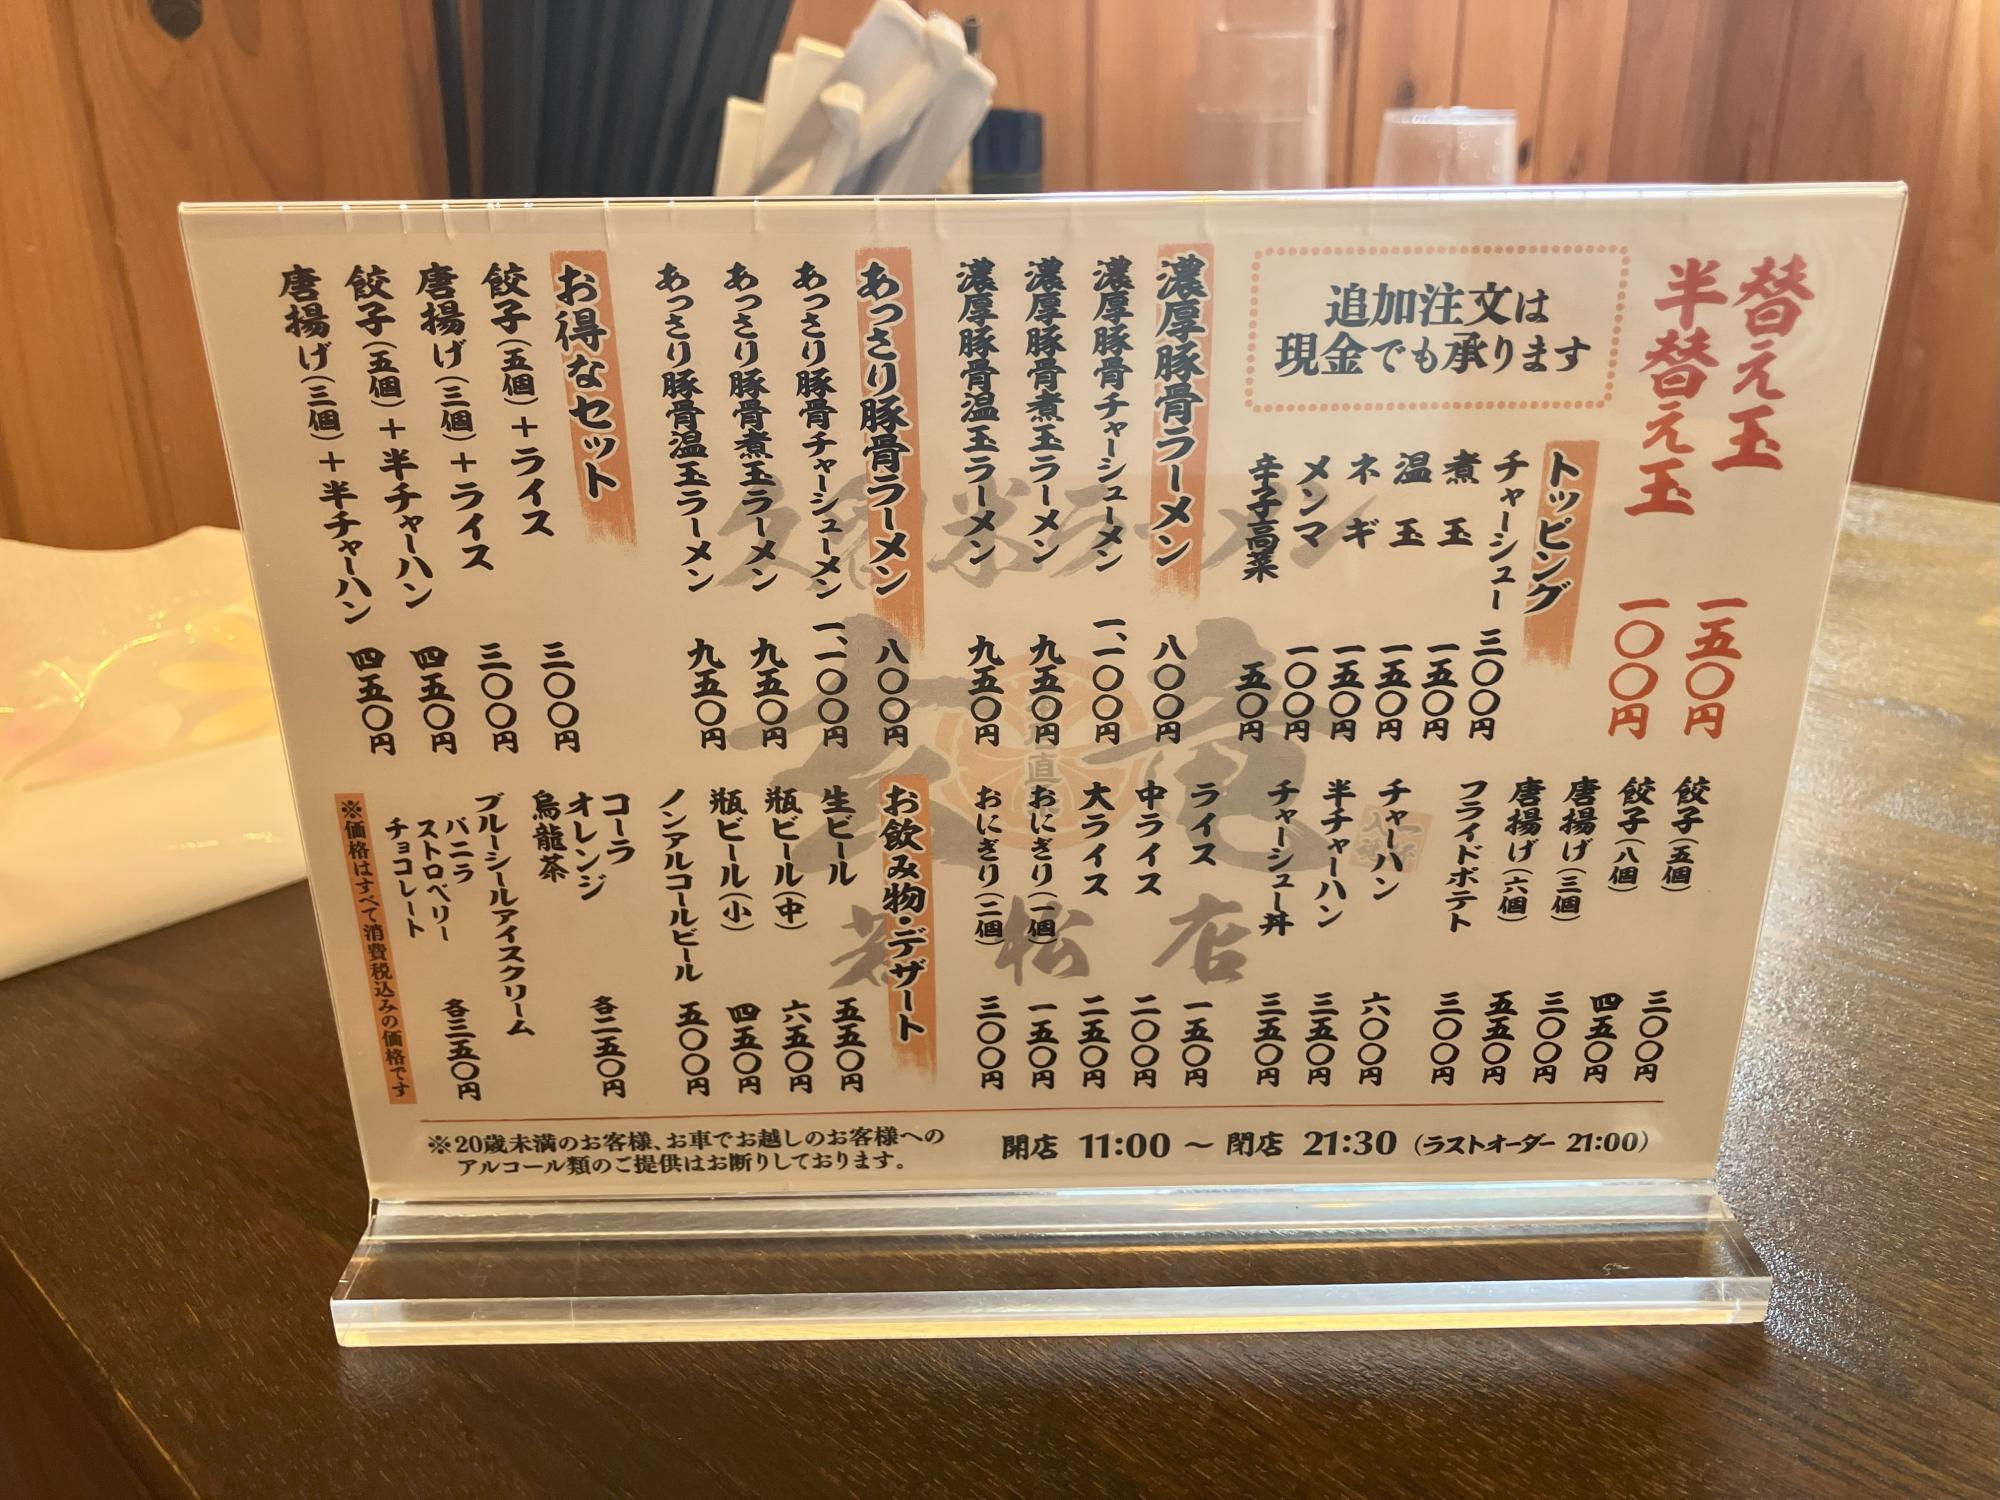 替え玉 一五〇円
半替え玉 一〇〇円
追加注文は
現金でも承ります
トッピング
チャーシュー 三〇〇円
煮玉 一五〇円
温玉 一五〇円
ネギ 一五〇円
メンマ 一〇〇円
辛子高菜 五〇円
濃厚豚骨ラーメン 八〇〇円
濃厚豚骨チャーシューメン 一、一〇〇円
濃厚豚骨煮玉ラーメン 九五〇円
濃厚豚骨温玉ラーメン 九五〇円
あっさり豚骨ラーメン 八〇〇円
あっさり豚骨チャーシューメン 一、一〇〇円
あっさり豚骨煮玉ラーメン 九五〇円
あっさり豚骨温玉ラーメン 九五〇円
お得なセット
餃子(五個)+ライス 三〇〇円
唐揚げ(三個)+ライス 三〇〇円
餃子(五個)+半チャーハン 四五〇円
唐揚げ(三個)+半チャーハン 四五〇円
餃子(五個) 三〇〇円
餃子(八個) 四五〇円
唐揚げ(三個) 三〇〇円
唐揚げ(六個) 五五〇円
フライドポテト 三〇〇円
チャーハン 六〇〇円
半チャーハン 三五〇円
チャーシュー丼 三五〇円
ライス 一五〇円
中ライス 二〇〇円
大ライス 二五〇円
おにぎり(一個) 一五〇円
おにぎり(二個) 三〇〇円
お飲み物・デザート
生ビール 五五〇円
瓶ビール(中) 六五〇円
瓶ビール(小) 四五〇円
ノンアルコールビール 五〇〇円
コーラ
オレンジ
烏龍茶 各二五〇円
ブルーシールアイスクリーム
バニラ
ストロベリー
チョコレート 各三五〇円
※価格はすべて消費税込みの価格です
久留米ラーメン
玄竜
若松店
※20歳未満のお客様、お車でお越しのお客様への
アルコール類のご提供はお断りしております。
開店 11:00 ～ 閉店 21:30 (ラストオーダー 21:00)